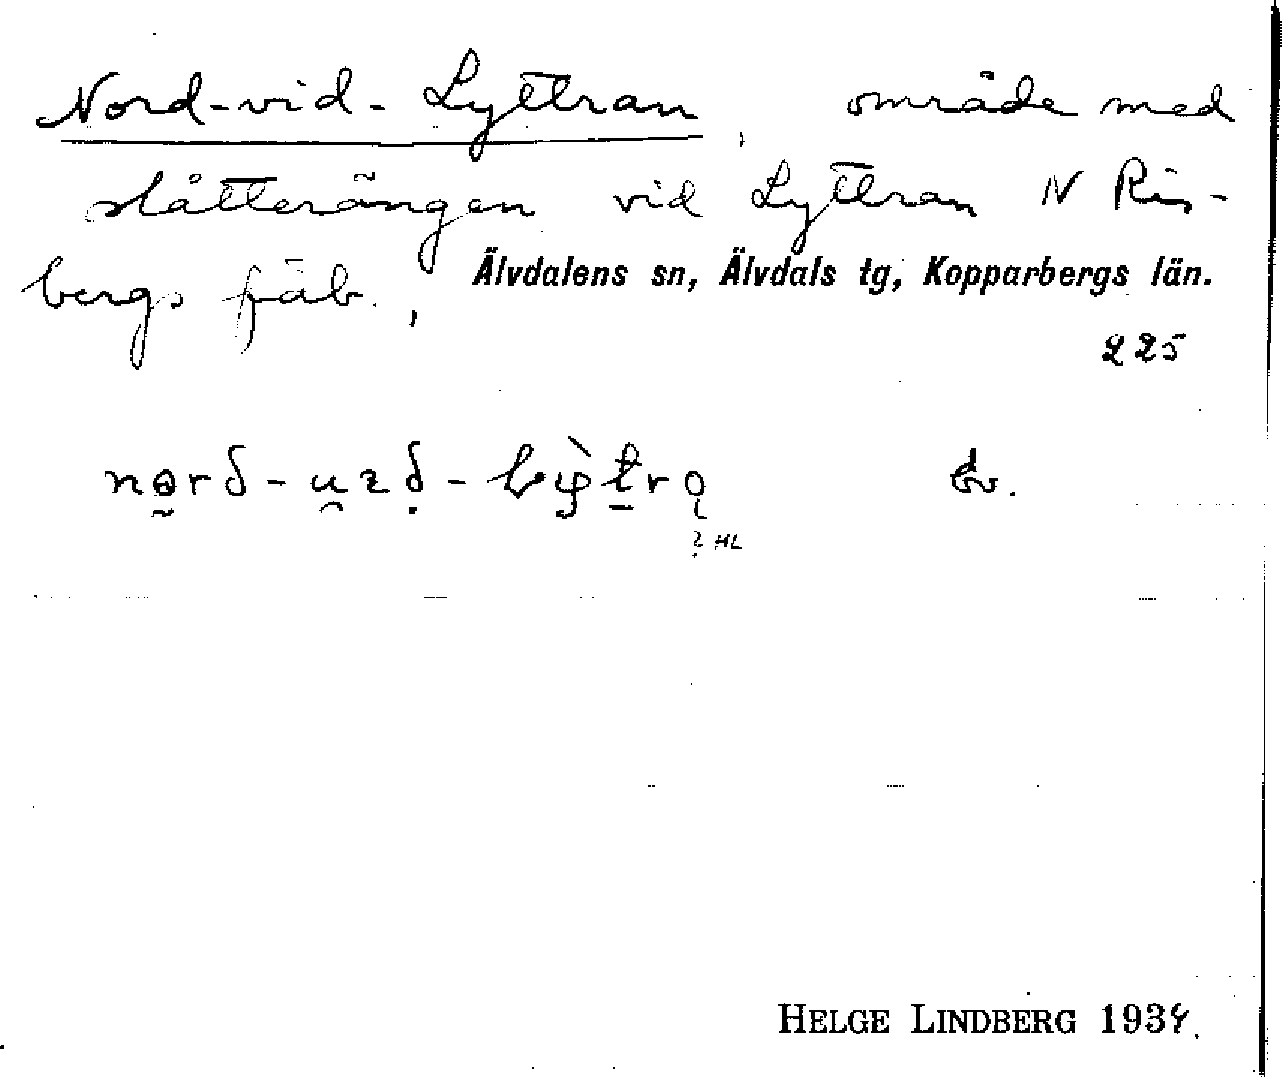 Nord-vid-Lyttran, område med
slåtterängen vid Lyttran N Ris-
bergs fäb.,
Älvdalens sn, Älvdals tg, Kopparbergs län.
225
Ev.
? HL
HELGE LINDBERG 1934.